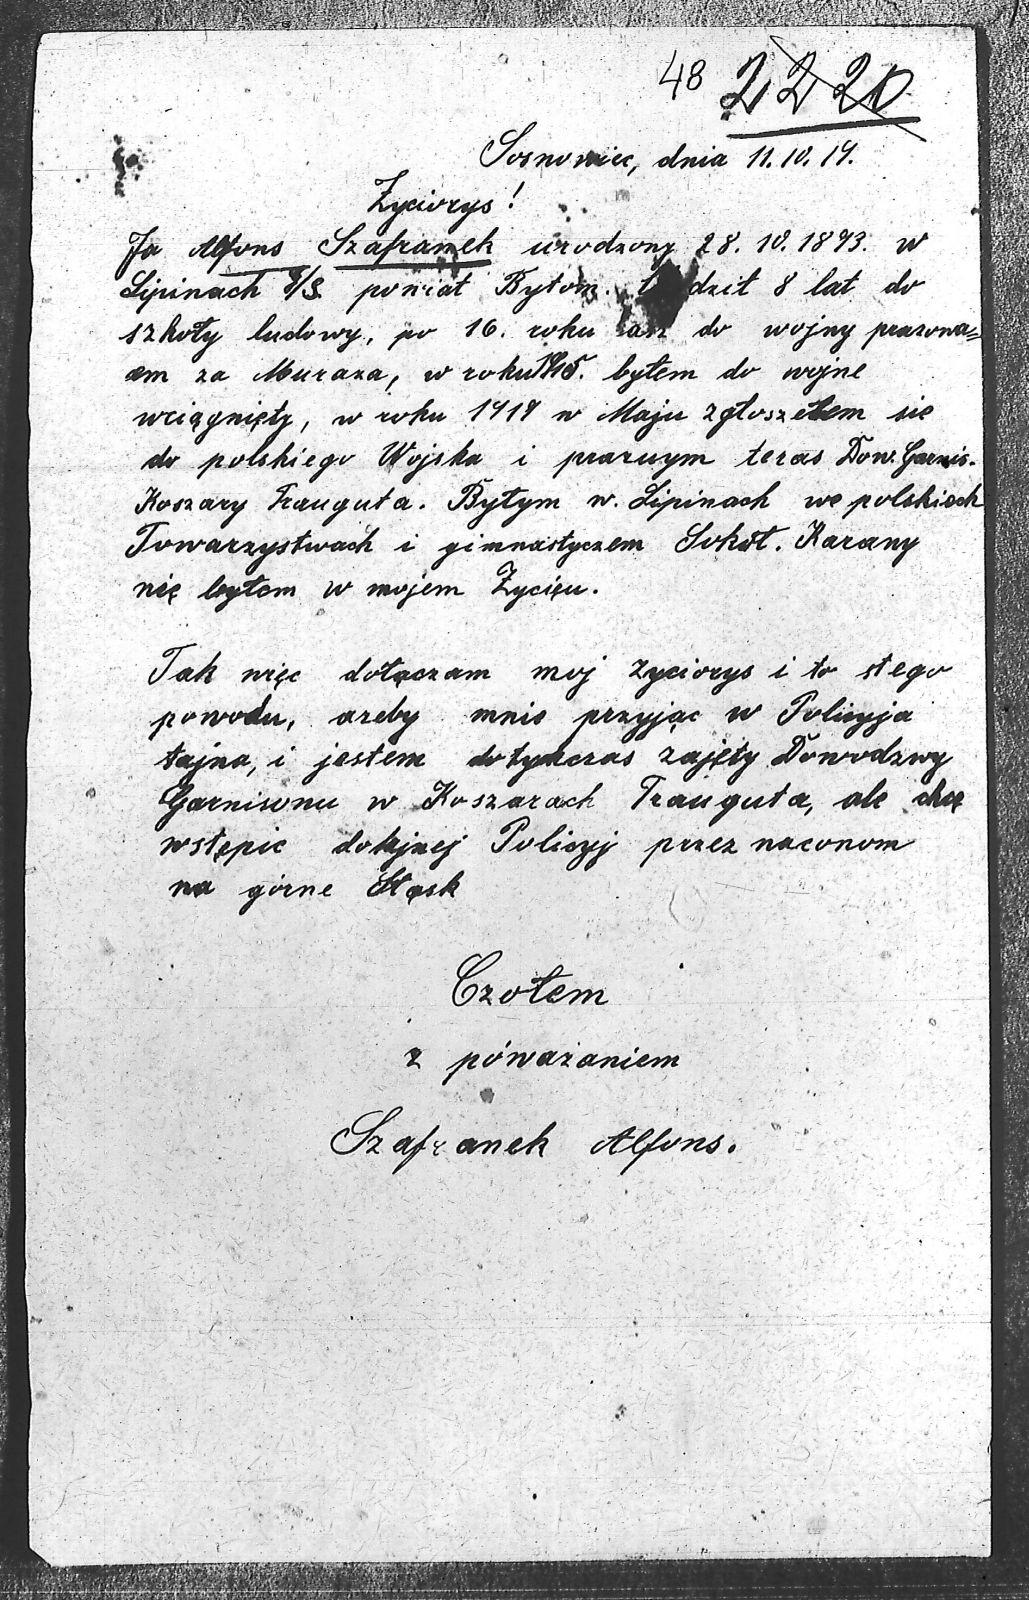 48 2220
Sosnowiec, dnia 11.10.19.
Życiorys!
Ja Alfons Szafranek urodzony 28.10.1893. w
Lipinach O/S. powiat Bytom. dził 8 lat do
szkoły ludowy, po 16. roku asz do wojny prazowa=
em za Muraza, w roku 1915. byłem do wojne
wciągnięty, w roku 1919 w Maju zgłoszełem się
do polskiego Wojska i prazuym teras Dow. Garnis.
Koszary Trauguta. Byłym w. Lipinach we polskiech
Towarzystwach i gimnastyczem Sokół. Karany
nię byłem w mojem Życięu.
Tak więc dołączam moj życiorys i to stego
powodu, azeby mnie przyjąc w Policyja
tajna, i jestem dotychczas zajęty Dowodzwy
Garnisonu w Koszarach Trauguta, ale chcę
wstępic do Policyj przez
na górne Sląsk
Czołem
z póważaniem
Szafranek Alfons.